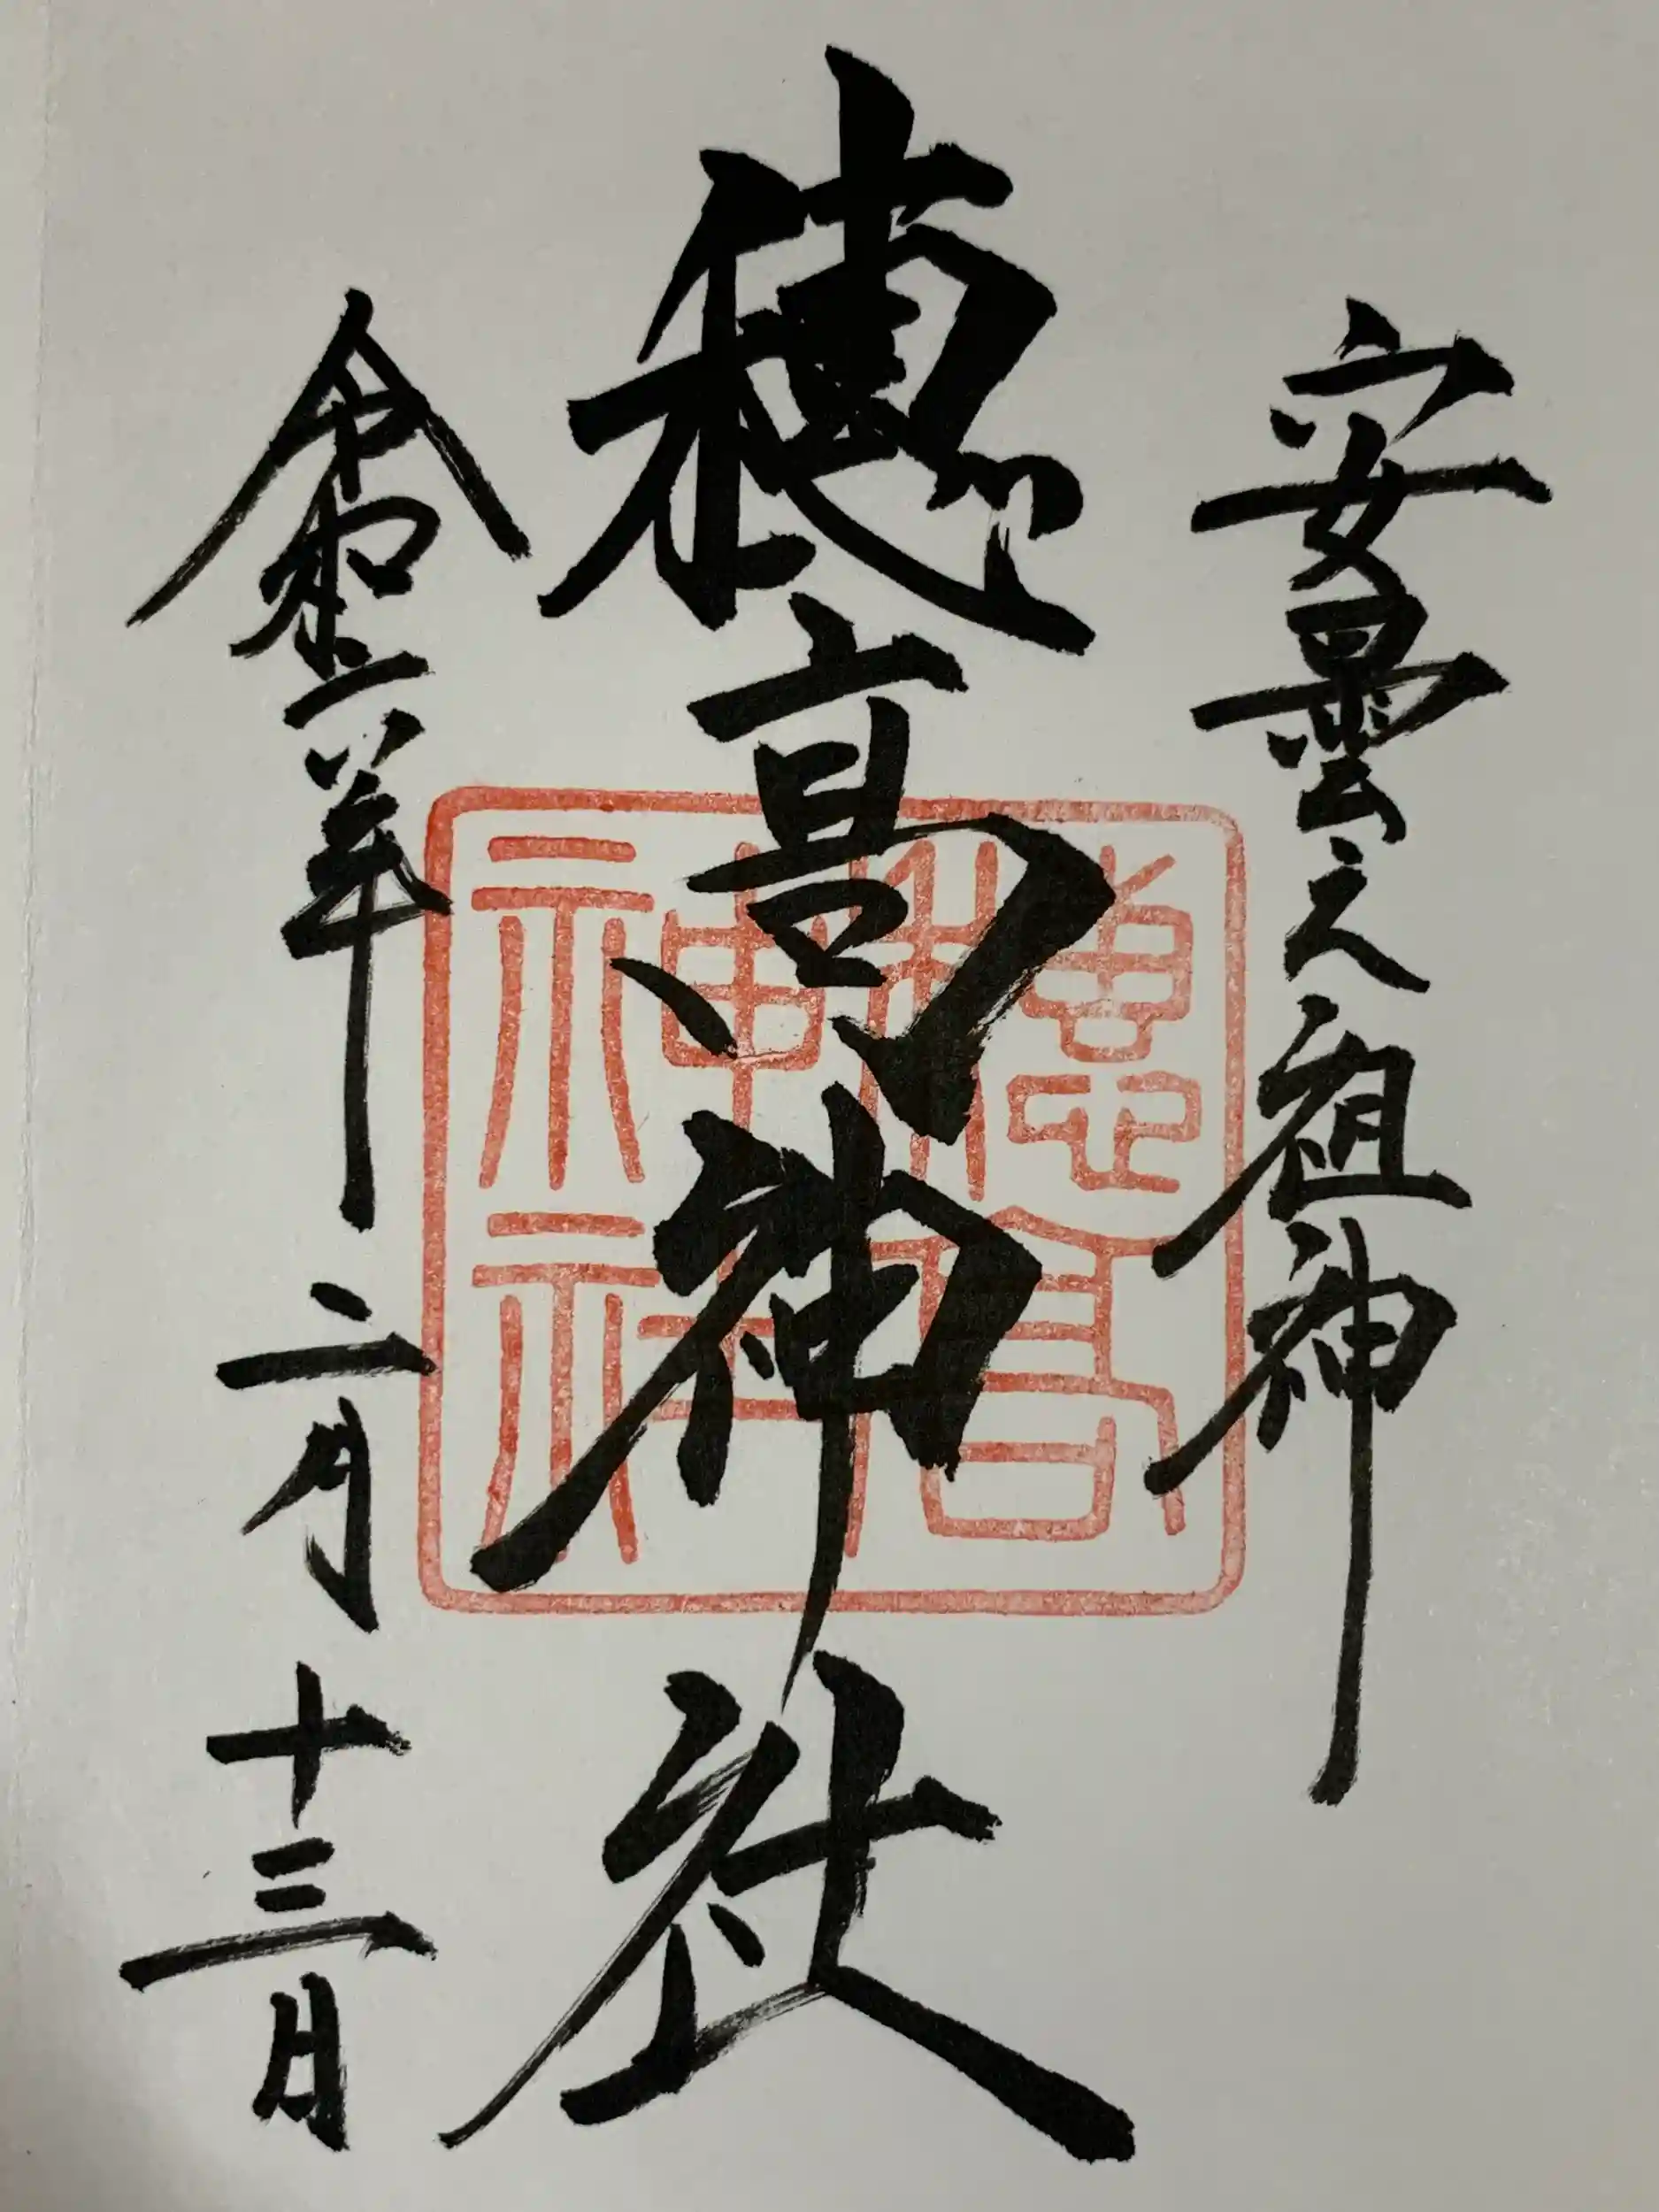 安曇之祖神
穂高神社
令和二年二月十三日
穗高
神社